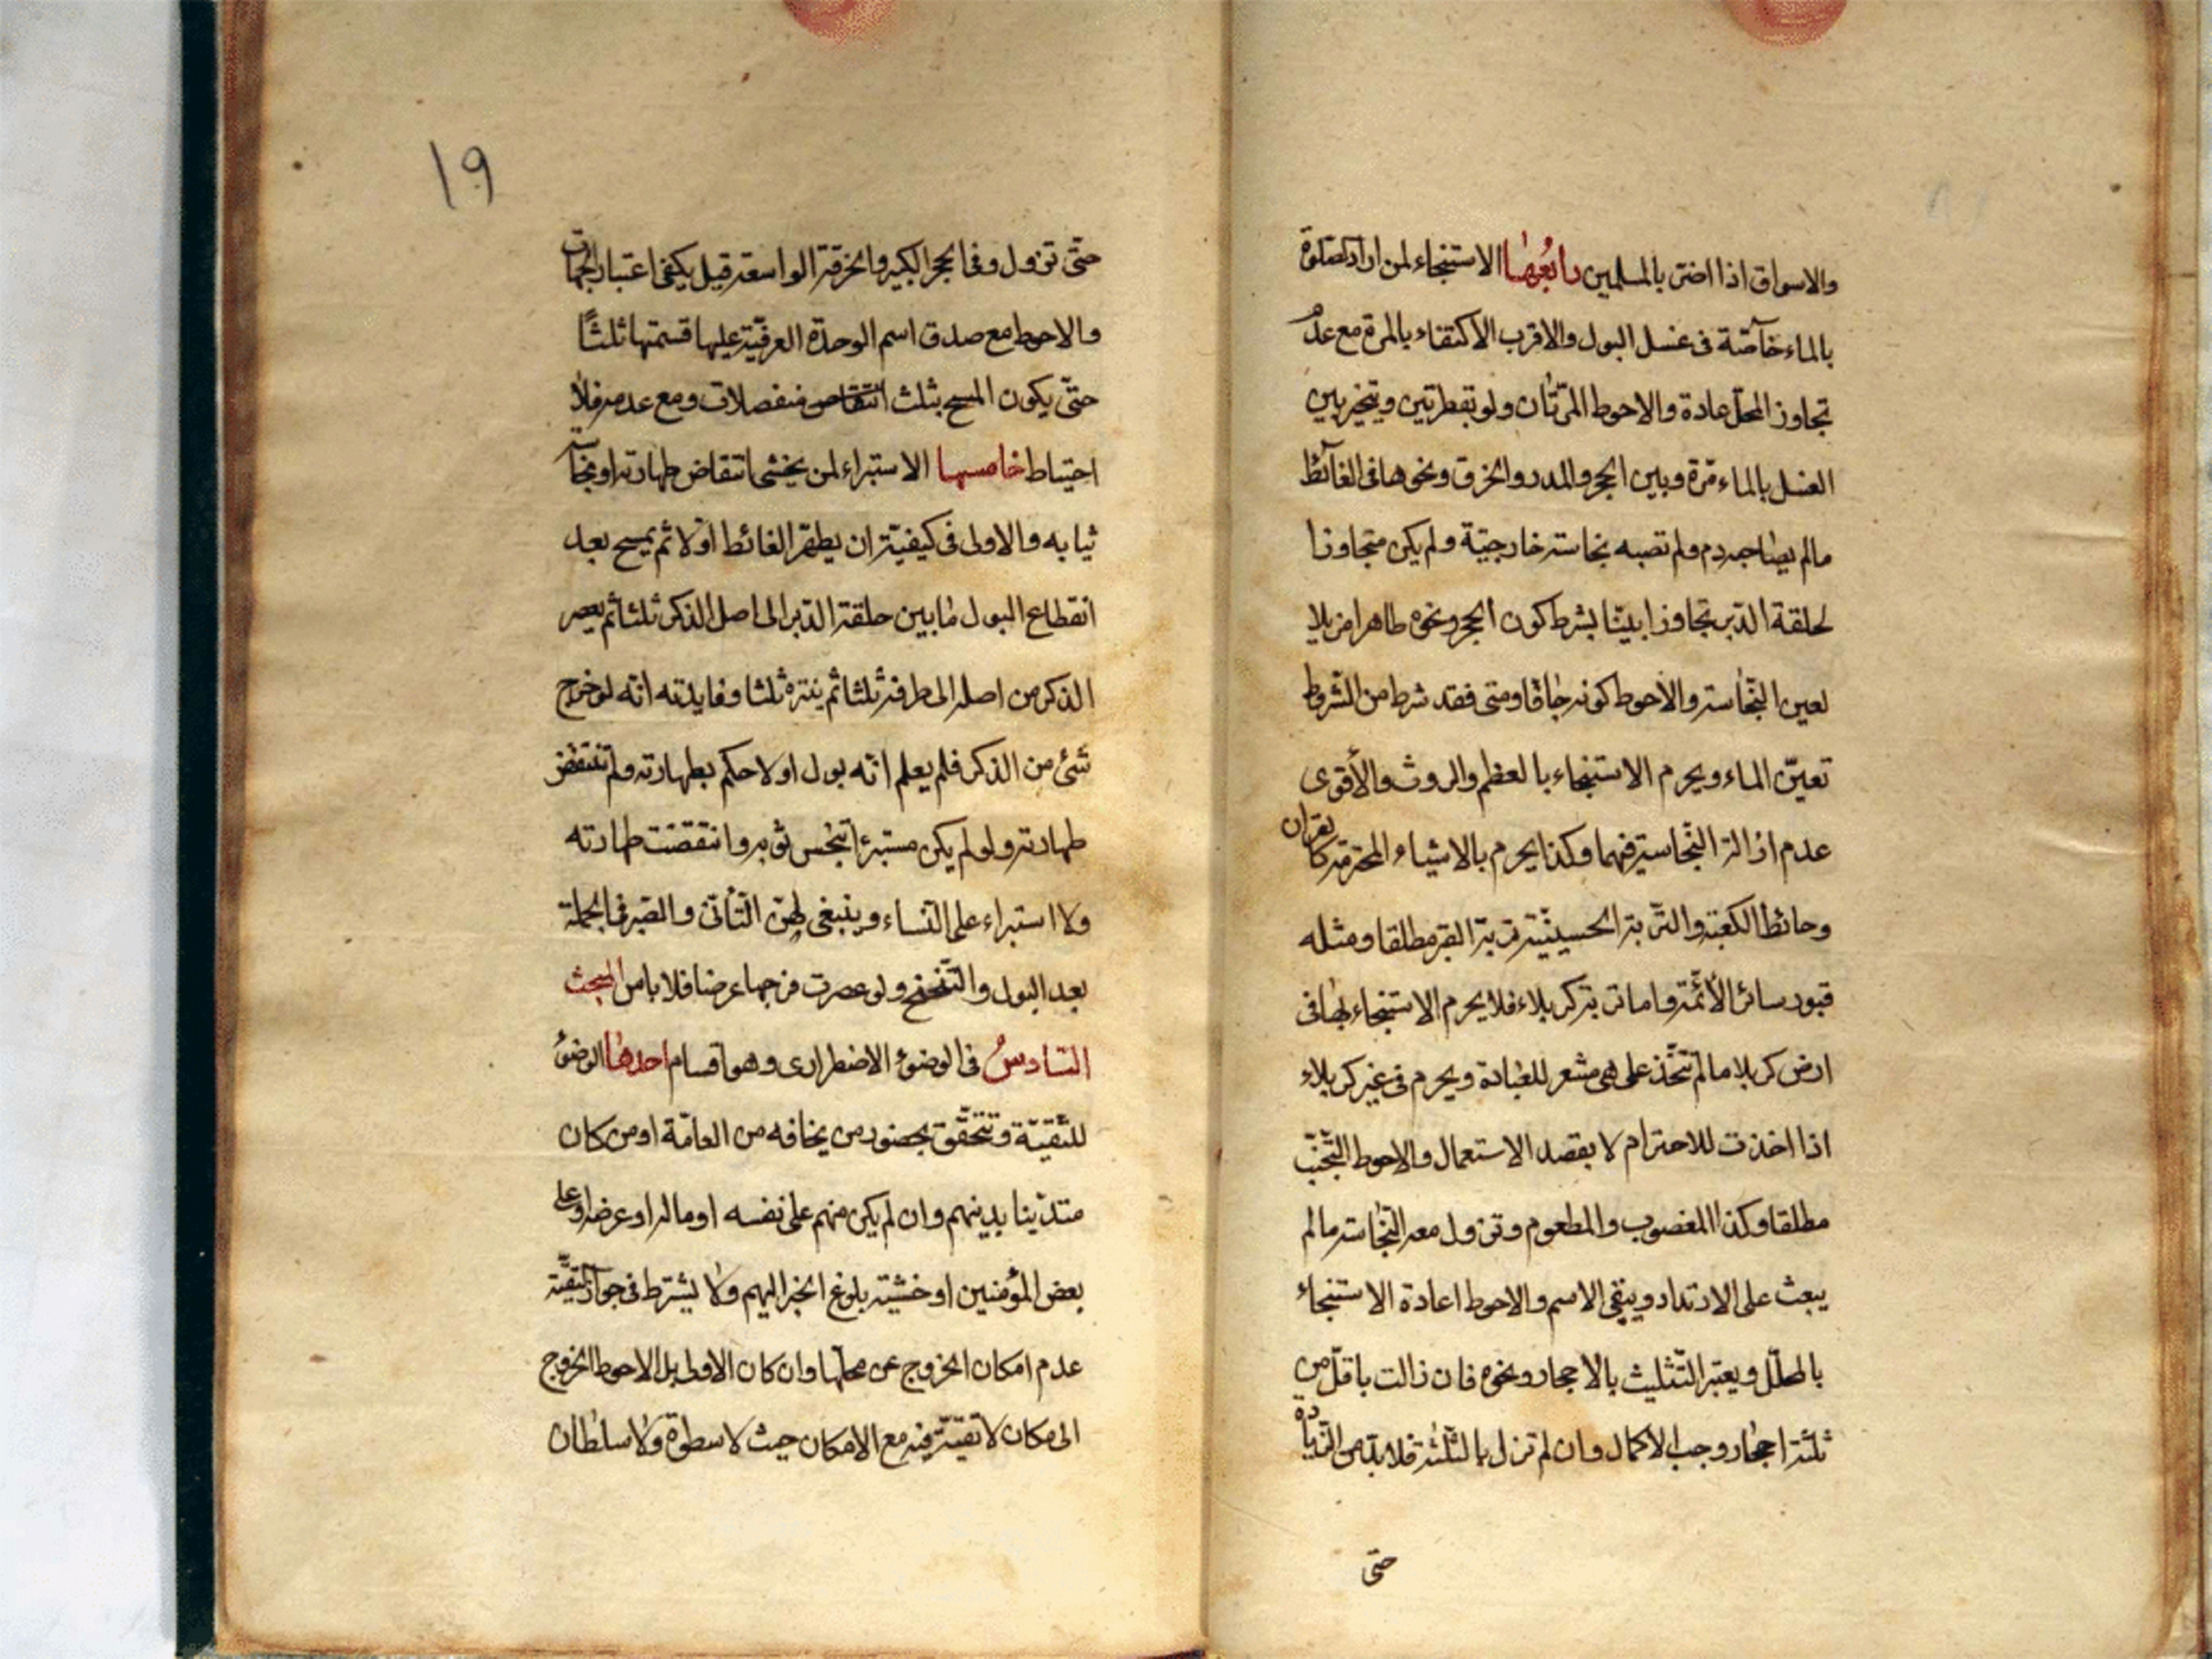 والاسواق اذا اضر بالمسلمين رابعها الاستنجاء لمن اراد الصلوة
بالماء خاصّة فى غسل البول والاقرب الاكتفاء بالمرة مع عدم
تجاوز المحلّ عادة والاحوط المرّتان ولو بقطرتين ويتخير بين
الغسل بالماء مرّة وبين الحجر والمدر والخرق ونحوها فى الغائط
مالم يصاحبه دم ولم تصبه نجاسة خارجيّة ولم يكن متجاوزا
لحلقة الدّبر تجاوزا بيّنا بشرط كون الحجر ونحوه طاهرا مزيلا
لعين النّجاسة والاحوط كونه جافّا ومتى فقد شرط من الشّروط
تعيّن الماء ويحرم الاستنجاء بالعظم والروث والأقوى
عدم ازالة النّجاسة فيهما وكذا يحرم بالاشياء المحترمة كالقران
وحائط الكعبة والتّربة الحسينيّة تربة القبر مطلقا ومثله
قبور سائر الأئمّة واما تربة كربلاء فلا يحرم الاستنجاء بها فى
ارض كربلا مالم تتّخذ على هى مشعر للعبادة ويحرم فى غير كربلاء
اذا اخذت للاحترام لا بقصد الاستعمال والاحوط التّجنّب
مطلقا وكذا المغصوب والمطعوم وتزول معه النّجاسة مالم
يبعث على الارتداد ويبقى الاسم والاحوط اعادة الاستنجاء
بالمحلّل ويعتبر التّثليث بالاحجار ونحوه فان زالت باقلّ من
ثلثة احجار وجب الاكمال وان لم تزل بالثّلثة فلا بدّ من الزّيادة
حتى
19
حتّى تزول وفى الحجر الكبير والخرقة الواسعة قيل يكفى اعتبار الجهات
والاحوط مع صدق اسم الوحدة العرفيّة عليها قسمتها ثلثًا
حتّى يكون المسح بثلث انتقاص منفصلات ومع عدمه فلا
احتياط خامسها الاستبراء لمن يخشى انتقاض طهارته او نجاسة
ثيابه والاولى فى كيفيّته ان يطهّر الغائط اوّلا ثم يمسح بعد
انقطاع البول مابين حلقة الدّبر الى اصل الذكر ثلثا ثم يعصر
الذكر من اصله الى طرفه ثلثا ثم ينتره ثلثا وفايدته انّه لو خرج
شئ من الذكر فلم يعلم انّه بول اولا حكم بطهارته ولم تنتقض
طهارته ولو لم يكن مستبرئا تنجّس ثوبه وانتقضت طهارته
ولا استبراء على النّساء وينبغى لهنّ التّأنّى والصّبر فى الجملة
بعد البول والتّنحنح ولو عصرت فرجها عرضا فلا باس المبحث
السّادس فى الوضوء الاضطرارى وهو اقسام احدها الوضوء
للتّقيّة وتتحقّق بحضور من يخافه من العامّة او من كان
متديّنا بدينهم وان لم يكن منهم على نفسه او ماله او عرضه او على
بعض المؤمنين او خشية بلوغ الخبر اليهم ولا يشترط فى جواز التقيّة
عدم امكان الخروج عن محلّها وان كان الاولى بل الاحوط الخروج
الى مكان لا تقيّة فيه مع الامكان حيث لا سطوة ولا سلطان